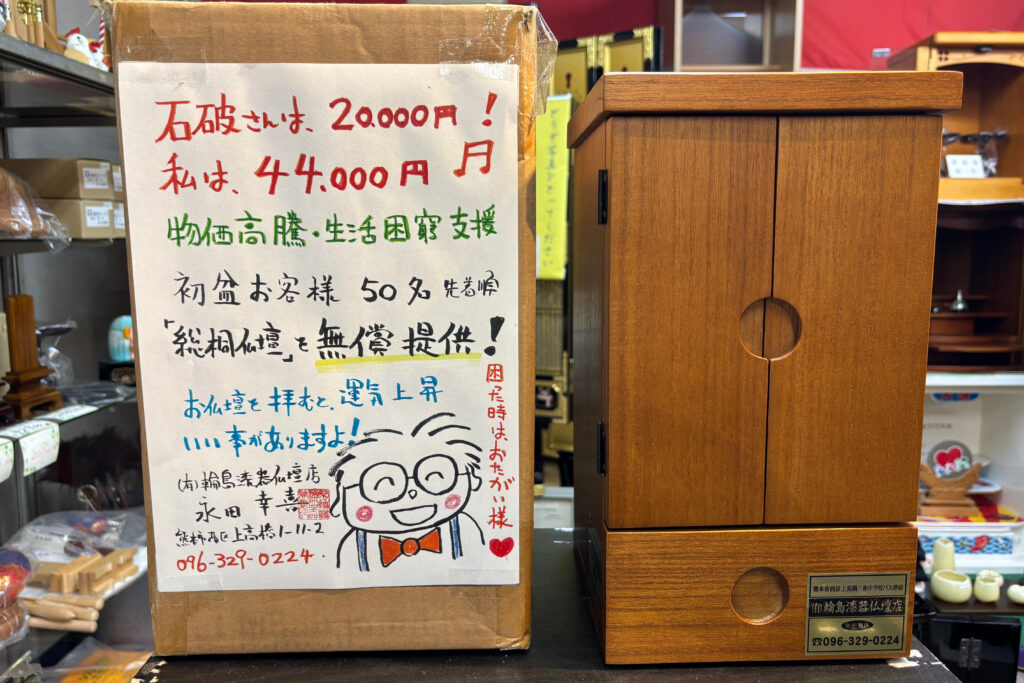 石破さんは、20.000円！
私は、44.000円
物価高騰・生活困窮支援
初盆お客様 50名 先着順
「総桐仏壇」を無償提供！
お仏壇を拝むと、運気上昇
いい事がありますよ！
困った時は、おたがい様
(有)輪島漆器仏壇店
永田 幸喜
熊本市西区上高橋1-11-2
096-329-0224
熊本市西区上高橋三和中学校バス停前
(有)輪島漆器仏壇店
☎096-329-0224